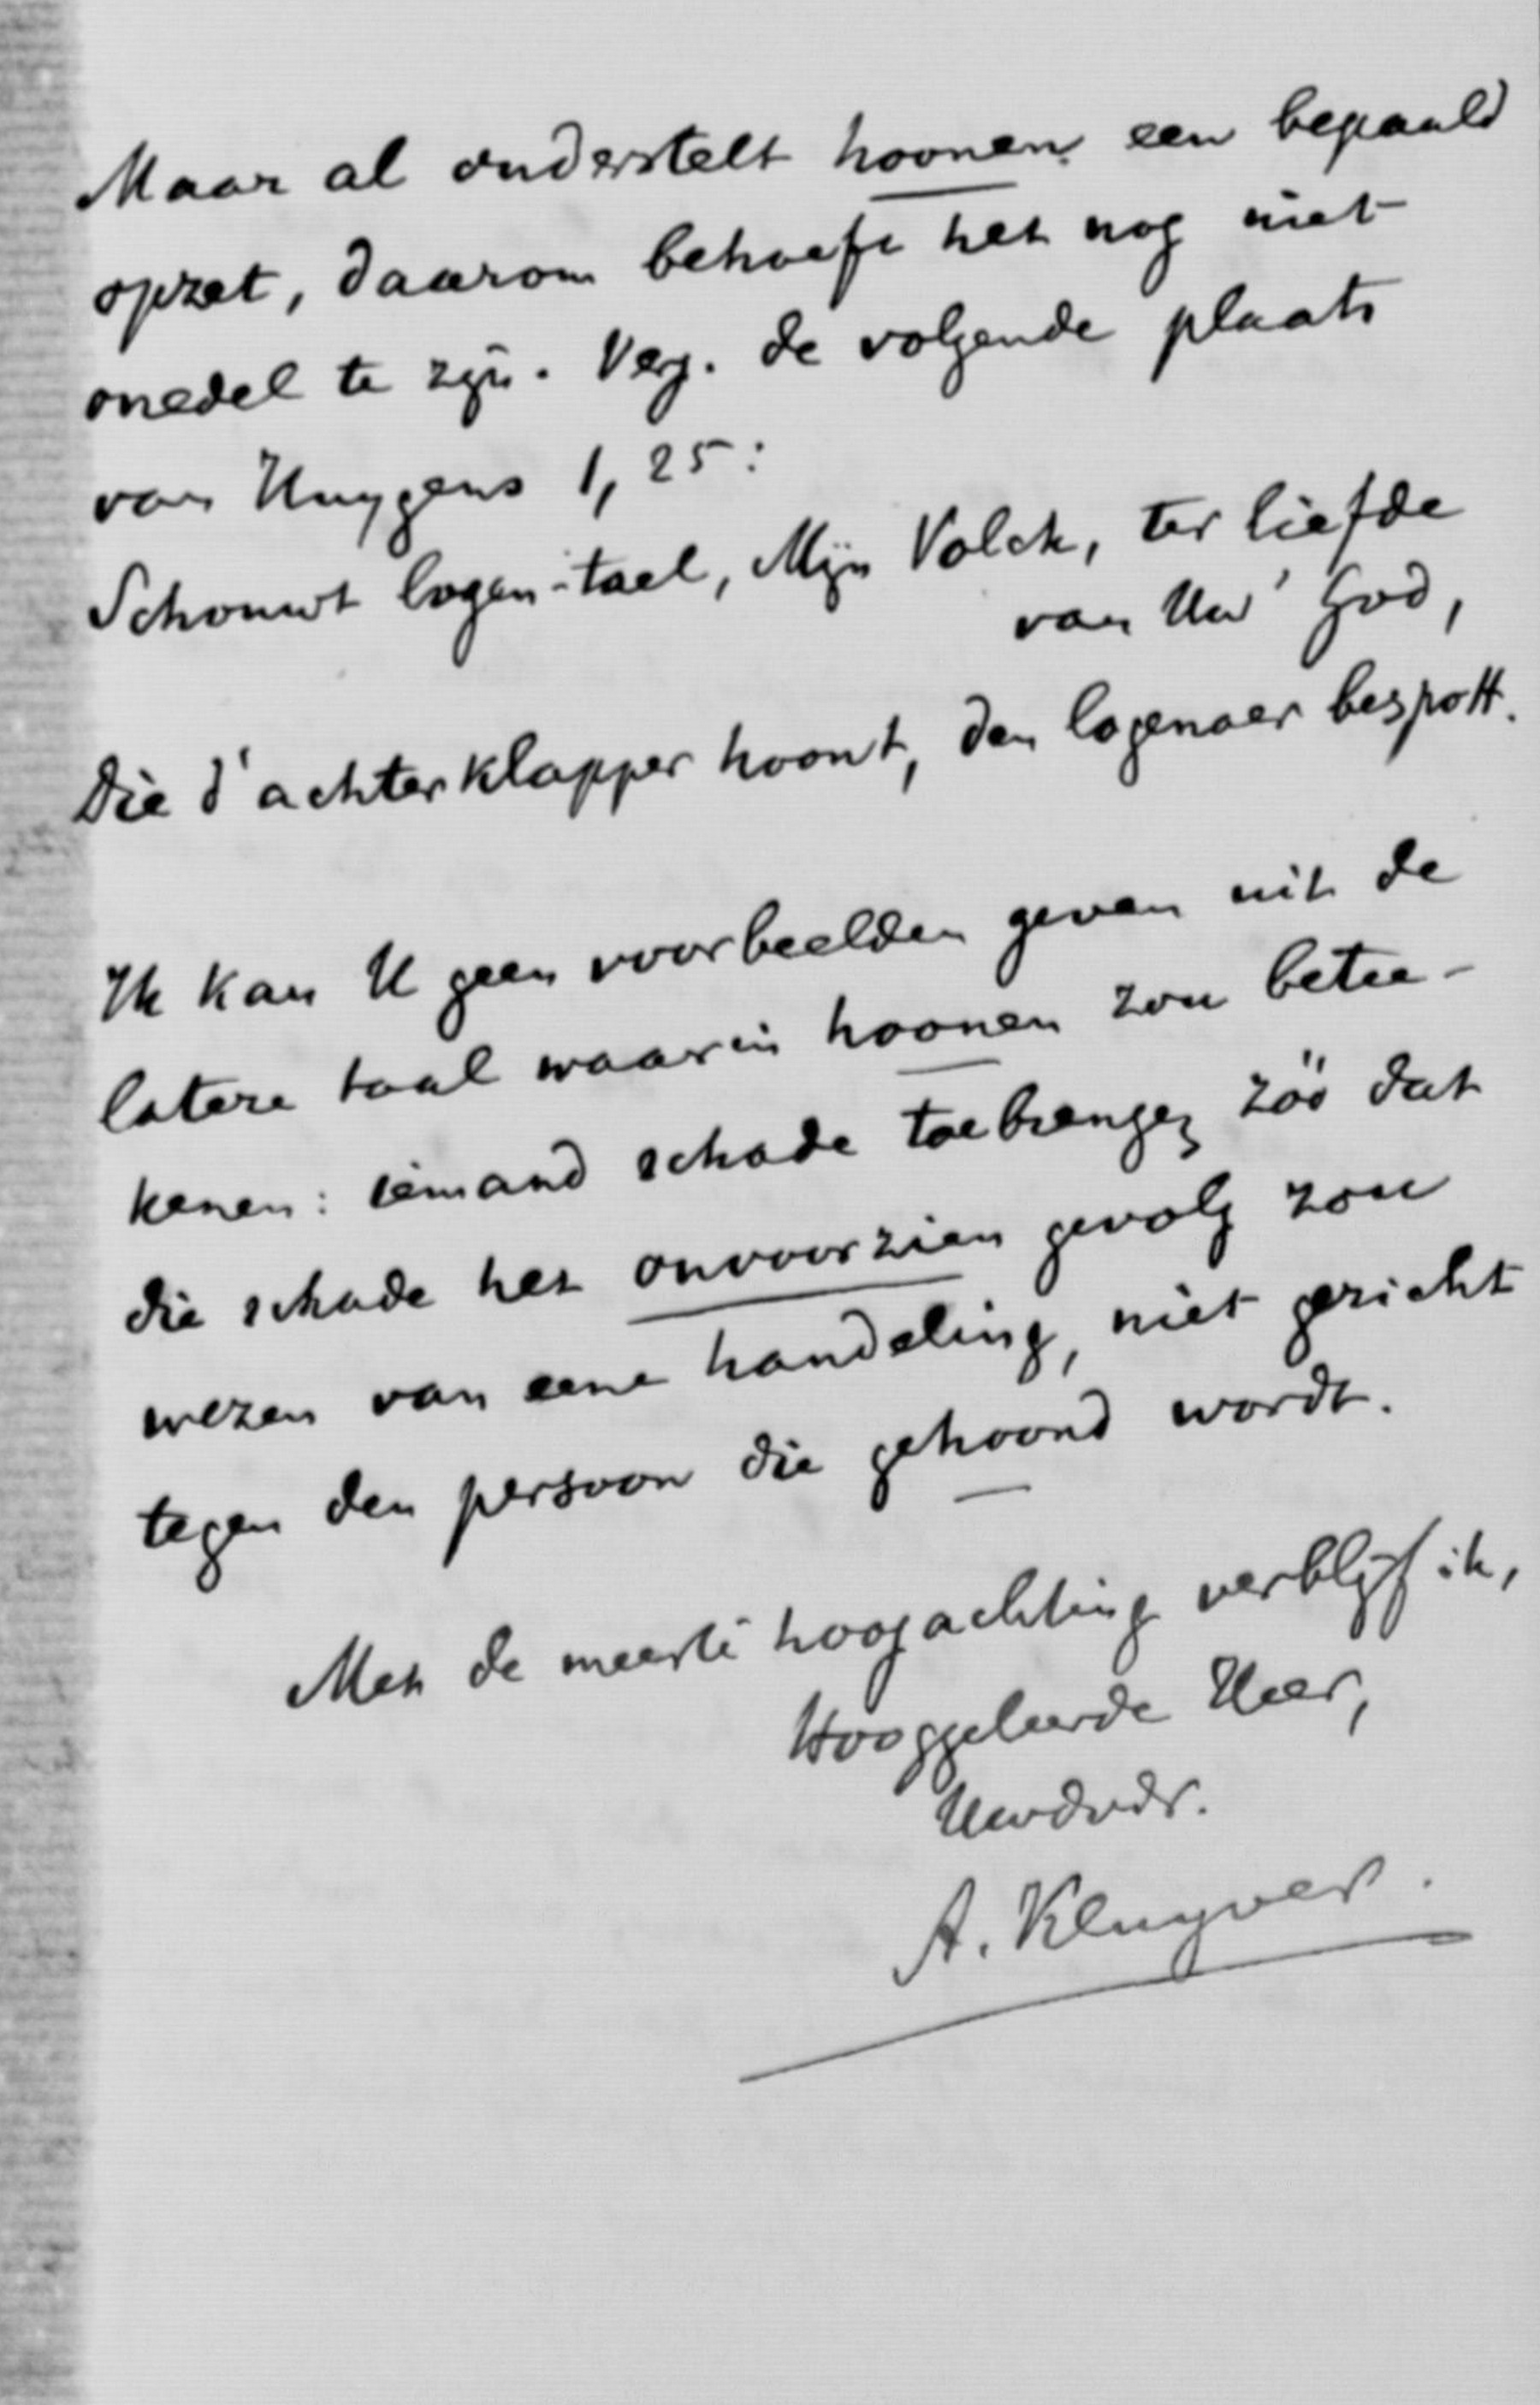 Maar al onderstelt hoonen een bepaald
opzet, daarom behoeft het nog niet
onedel te zijn. Verg. de volgende plaats
van Huygens 1, 25:
Schouwt logen-tael, Mijn Volck, ter liefde
van Uw' God,
Die d'achterklapper hoont, den logenaer bespott.
Ik kan U geen voorbeelden geven uit de
latere taal waarin hoonen zou betee-
kenen: iemand schade toebrengen zóó dat
die schade het onvoorzien gevolg zou
wezen van eene handeling, niet gericht
tegen den persoon die gehoond wordt.
Met de meeste hoogachting verblijf ik,
Hooggeleerde Heer,
Uwdvdr.
A. Kluyver.